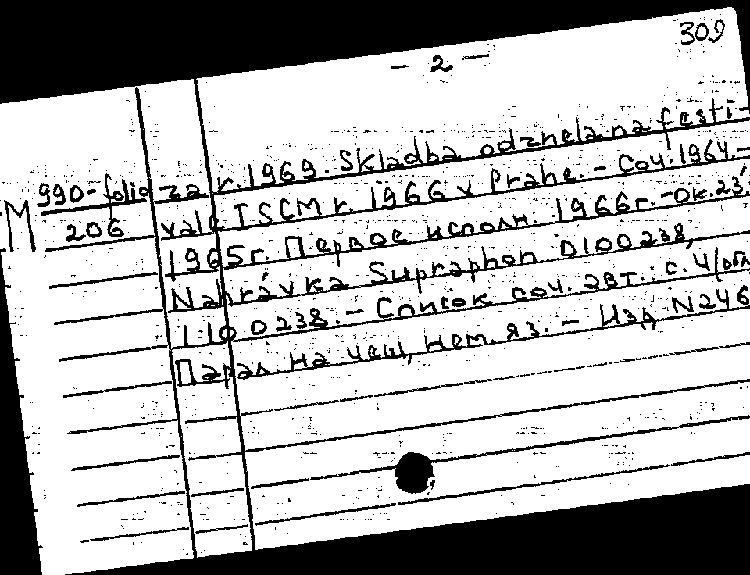 309
- 2 -
za r. 1969. Skladba odznela na festi-
M 990-folio vale ISCM r. 1966 v Prahe. - Соч. 1964.-
206 1965г. Первое исполн. 1966г. - Ок. 23.
Nahrávka Supraphon 0100238,
1100238. - Список соч. авт.: с. 4/обл.
Парал. на чеш, нем. яз. - Изд. N246